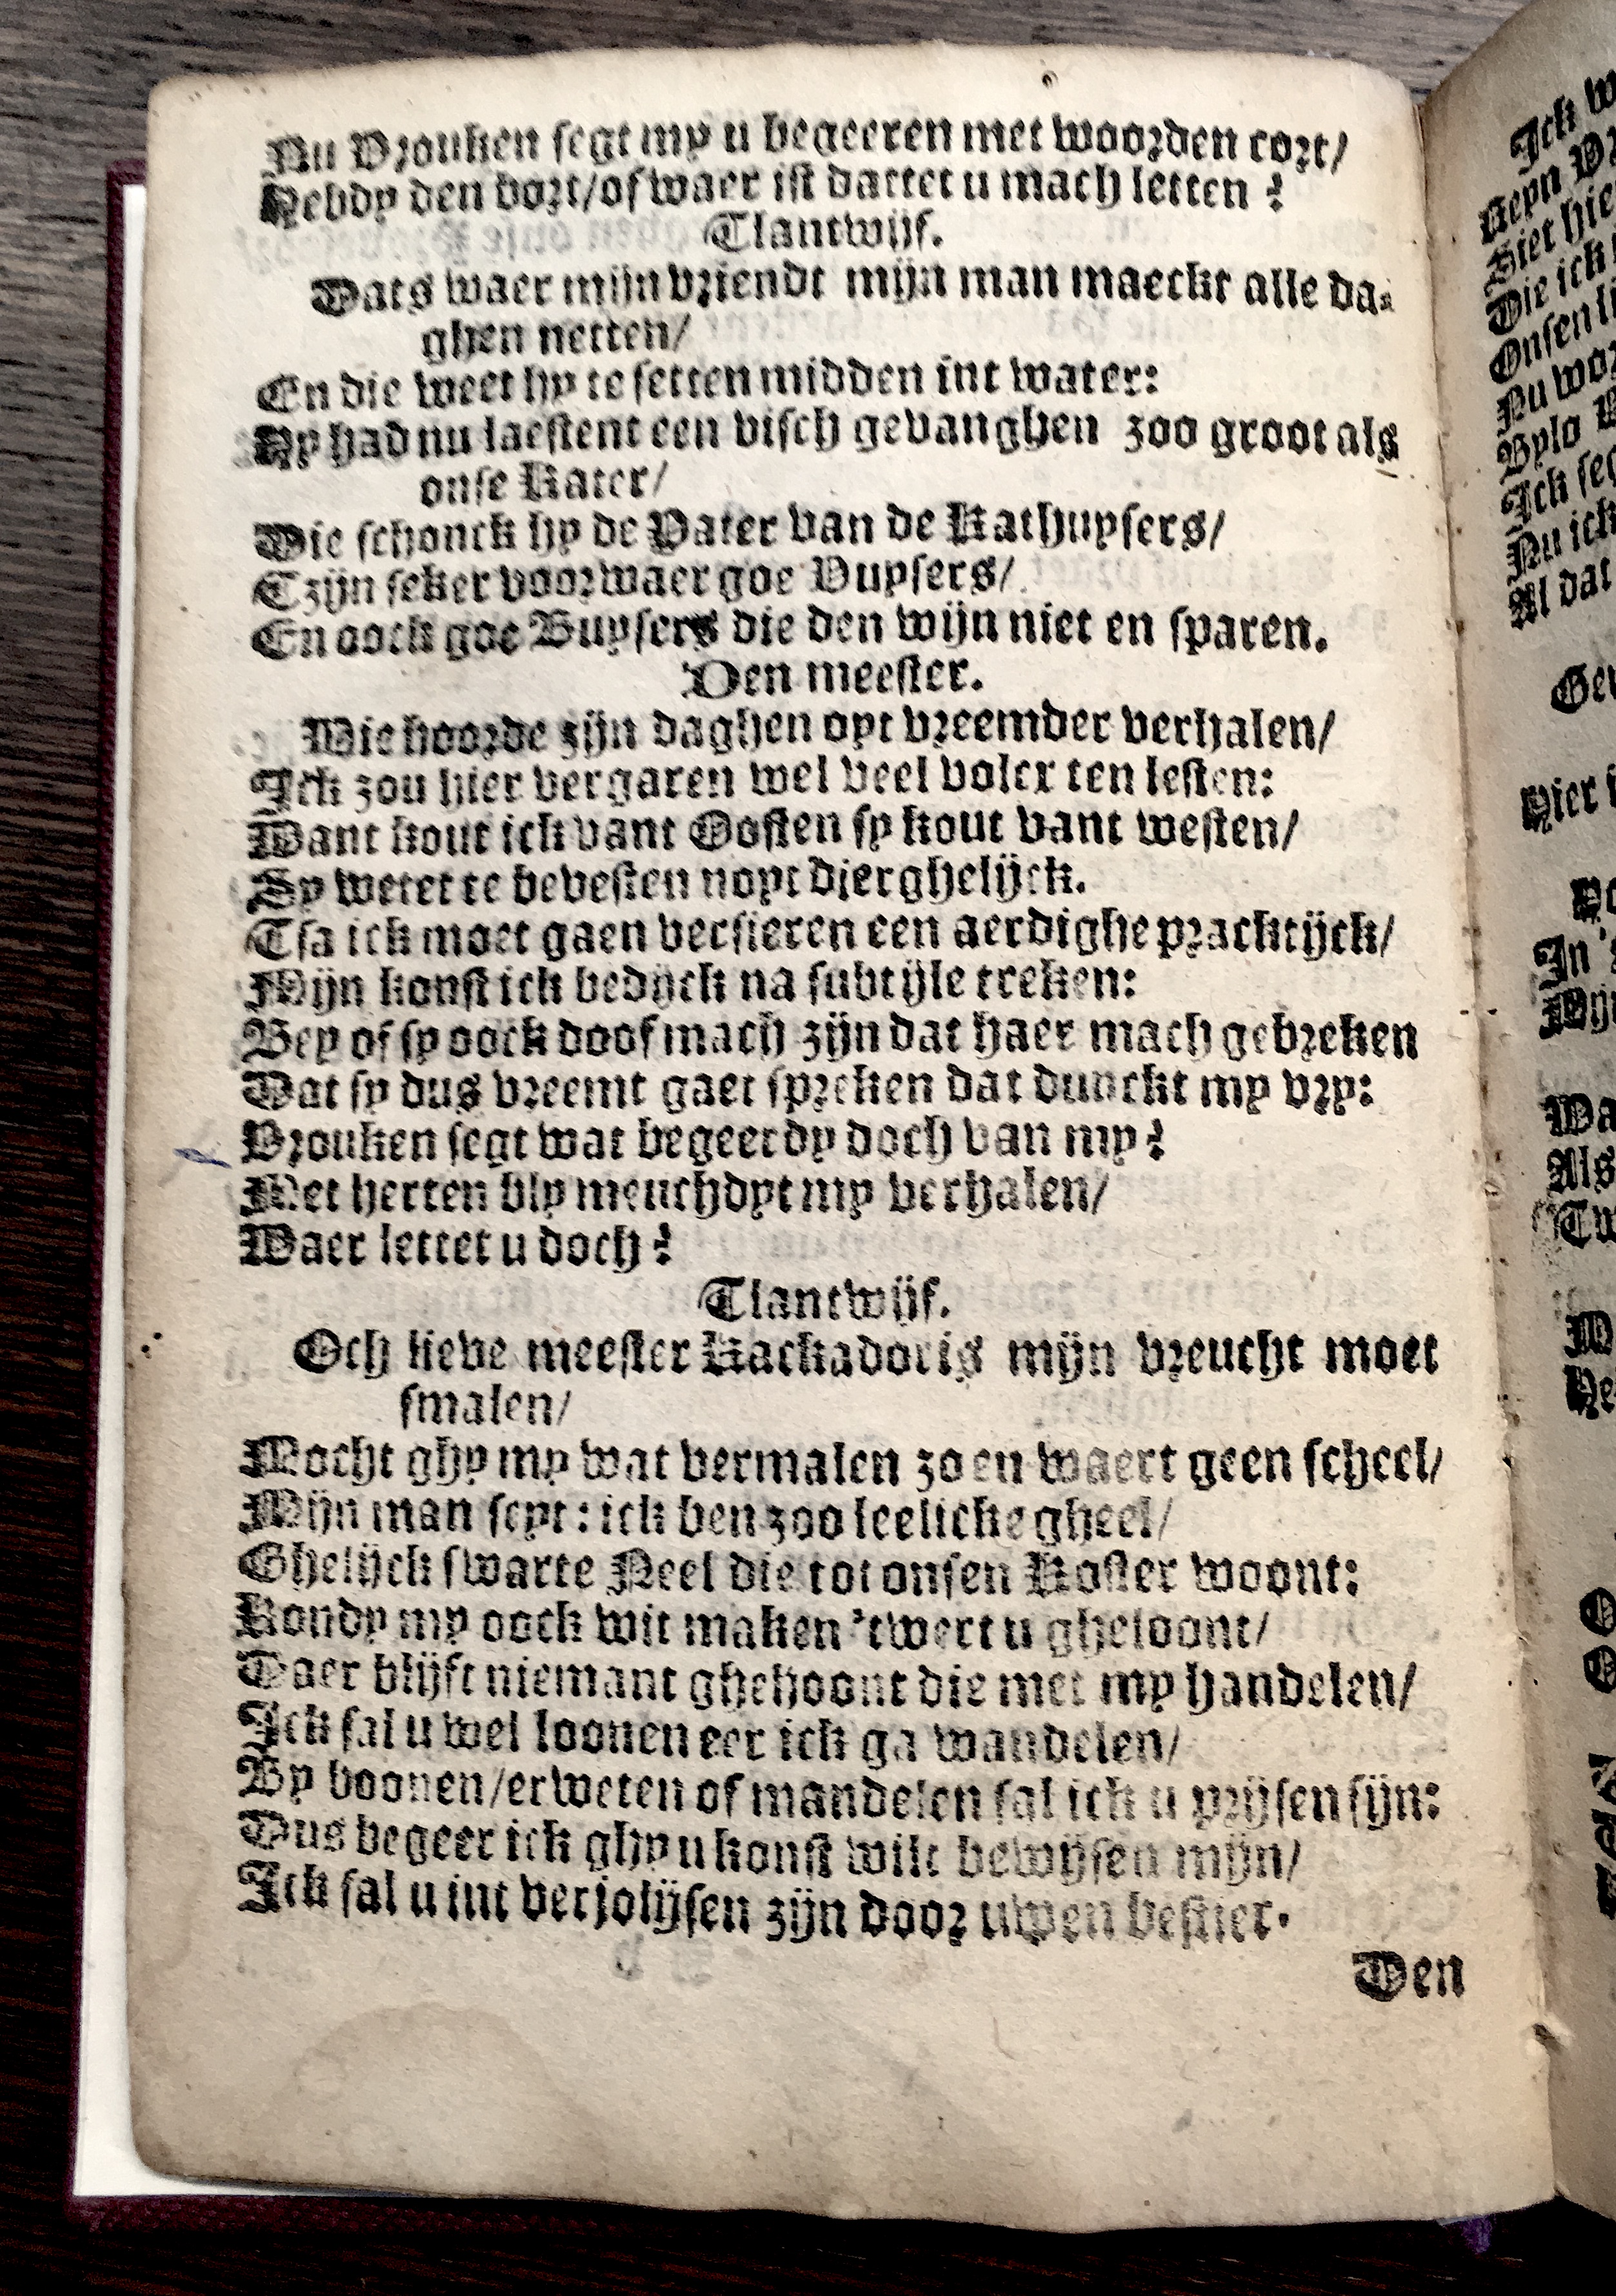 Nu Vrouken segt my u begeeren met woorden cort/
Hebdy den bort/of waer ist dattet u mach letten?
Tlantwijf.
Dats waer mijn vriendt mijn man maeckt alle da-
ghen netten/
En die weet hy te setten midden int water:
Hy had nu laestent een visch gevanghen zoo groot als
onse Kater/
Die schonck hy de Pater van de Kathuysers/
Tzijn seker voorwaer goe Vuysers/
En oock goe Buysers die den wijn niet en sparen.
Den meester.
Wie hoorde zijn daghen oyt vreemder verhalen/
Ick zou hier vergaren wel veel volcx ten lesten:
Want kout ick vant Oosten sy kout vant westen/
Sy wetet te bevesten noyt dierghelijck.
Tsa ick moet gaen versieren een aerdighe practijck/
Mijn konst ick bedijck na subtijle treken:
Bey of sy oock doof mach zijn dat haer mach gebreken
Dat sy dus vreemt gaet spreken dat dunckt my vry:
Vrouken segt wat begeerdy doch van my?
Met herten bly meuchdyt my verhalen/
Waer lettet u doch?
Tlantwijf.
Och lieve meester Kackadoris mijn vreucht moet
smalen/
Mocht ghy my wat vermalen zo en waert geen scheel/
Mijn man seyt: ick ben zoo leelicke gheel/
Ghelijck swarte Neel die tot onsen Koster woont:
Kondy my oock wit maken 'twert u gheloont/
Daer blijft niemant ghehoont die met my handelen/
Ick sal u wel loonen eer ick ga wandelen/
By boonen/erweten of mandelen sal ick u prijsen fijn:
Dus begeer ick ghy u konst wilt bewijsen mijn/
Ick sal u int verjolijsen zijn door uwen bestier.
Den